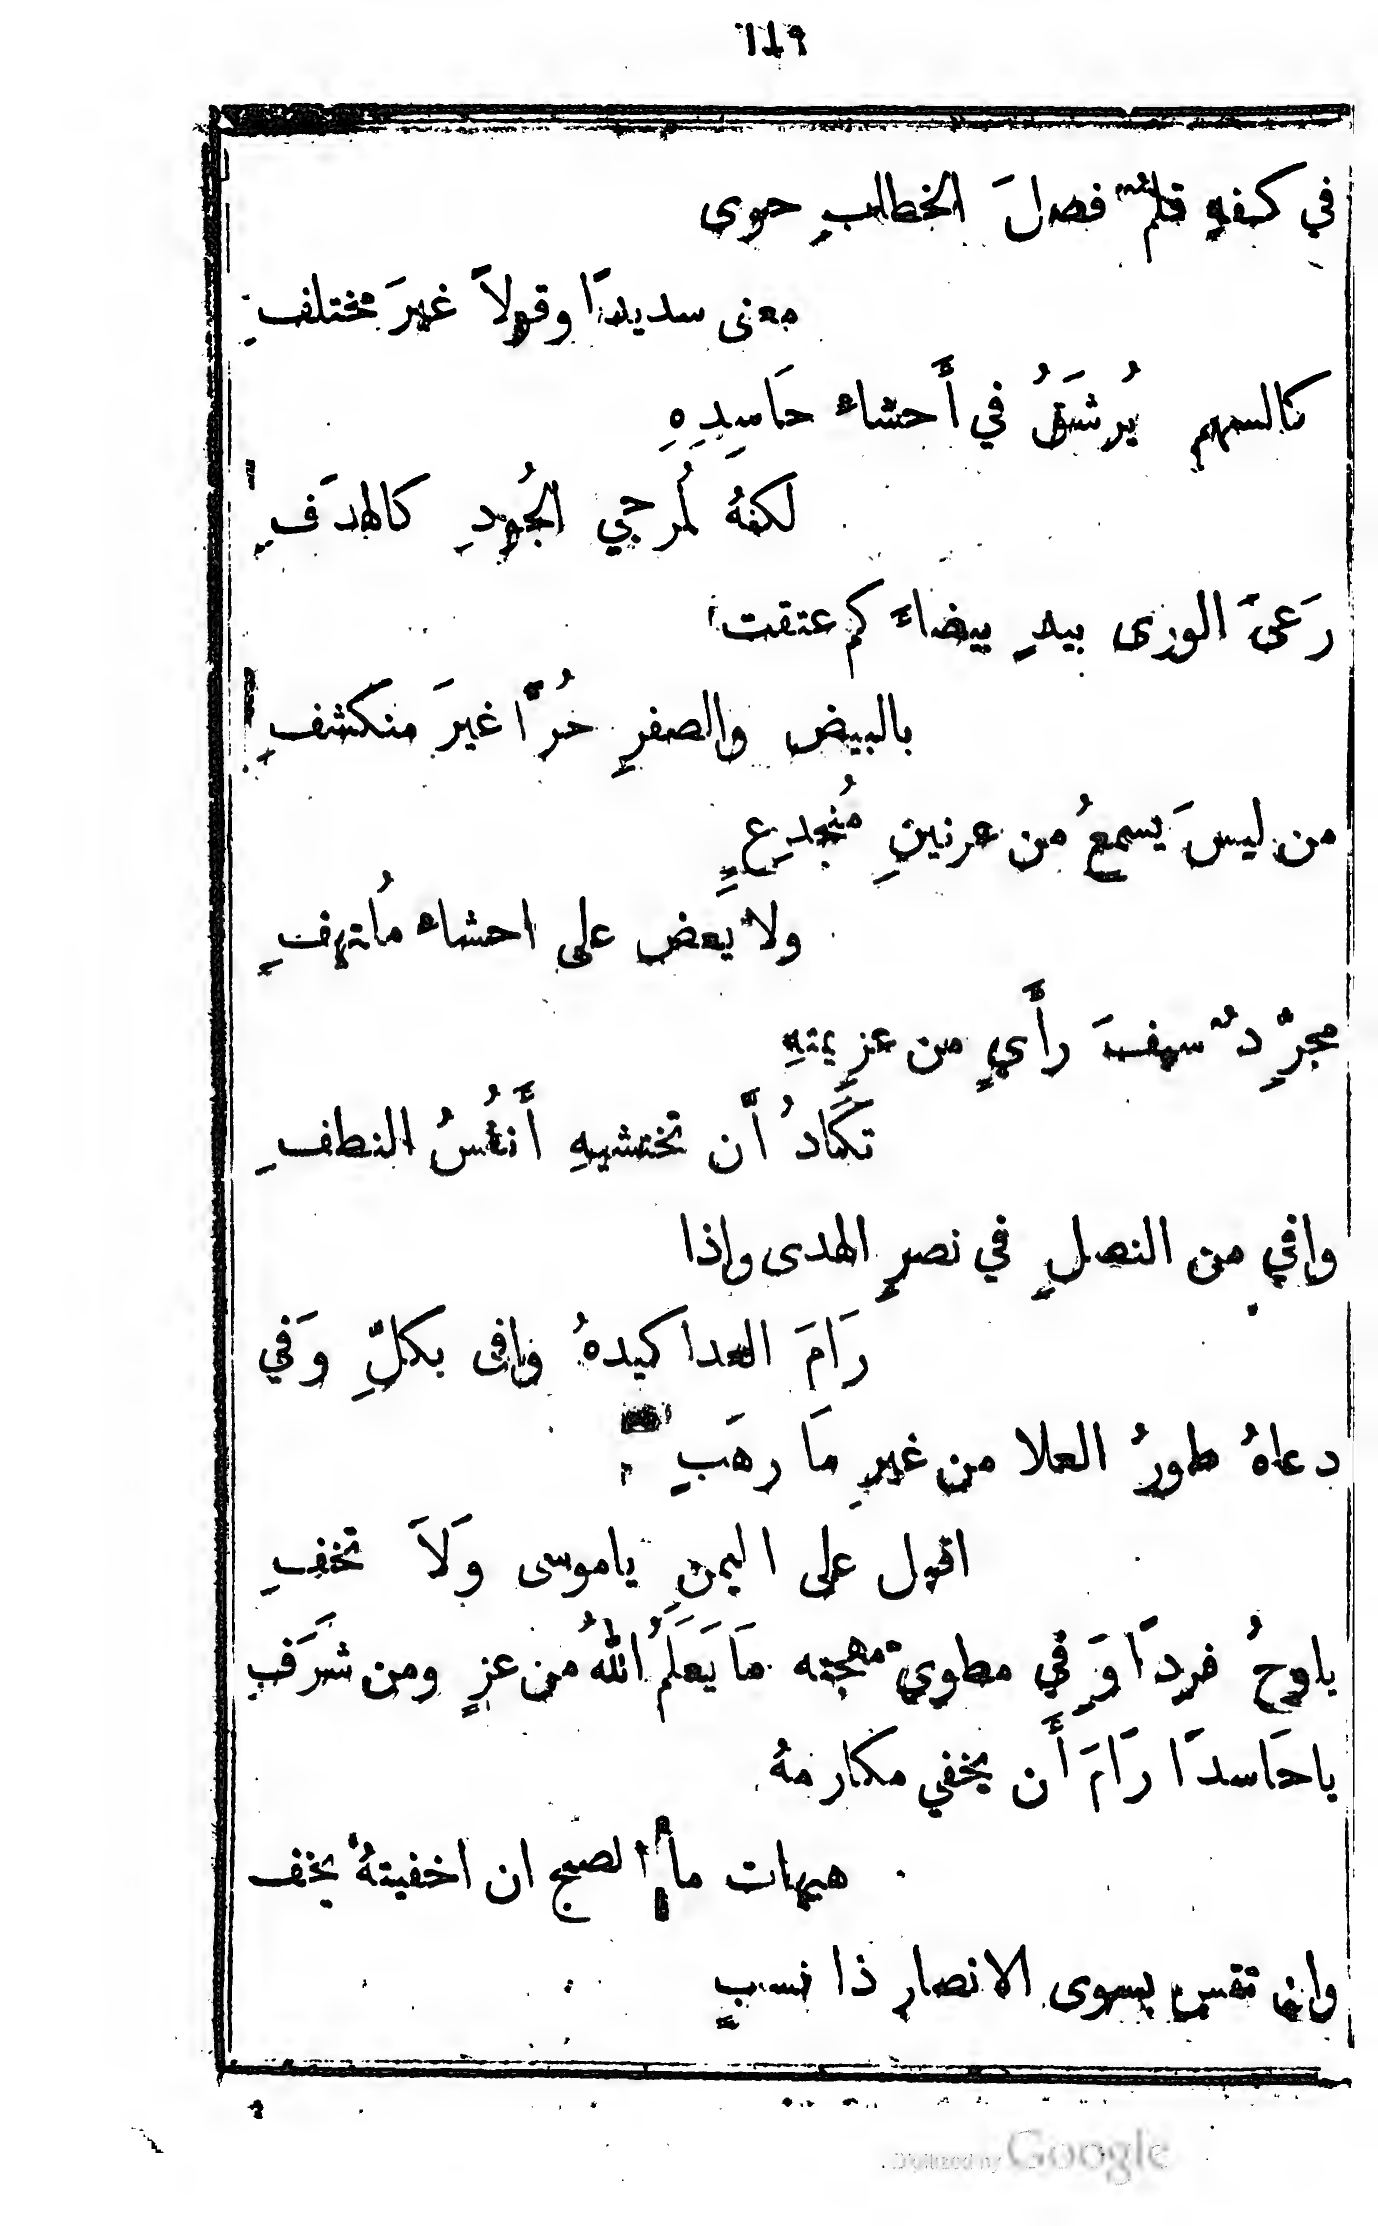 في كفهِ قلمٌ فصلَ الخطابِ حوى
معنى سديدًا وقولاً غيرَ مختلفِ
كالسهم يُرشَقُ في أَحشاء حَاسِدِهِ
لكنهُ لمُرجي الجُودِ كالهدَفِ
رَعىَ الورى بيدٍ بيضاءَ كم عتقت
بالبيض والصفرِ حُرًّا غيرَ منكشفِ
من ليسَ يسمعُ من عرنينِ مُنجدِعٍ
ولا يعض على احشاء مُلتهفٍ
مجرِّدٌ سيفَ رأَيٍ من عزيمتهِ
تكَادُ أَن تختشيهِ أَنفُسُ النطفِ
وافي من النصلِ في نصرِ الهدى واذا
رَامَ العدا كيدهُ وافى بكلِّ وَفي
دعاهُ طورُ العلا من غيرِ مَا رهَبٍ
اقبل على اليمنِ ياموسى وَلاَ تخفِ
يلوحُ فردًا وَفي مطويّ مهجته مَا يَعلَمُ اللهُ من عزٍ ومن شرَفِ
ياحَاسدًا رَامَ أَن يخفي مكارمهُ
هيهات ما الصبح ان اخفيتهُ يخف
وان تقس بسوى الانصارِ ذا نسبٍ
Digitized by Google